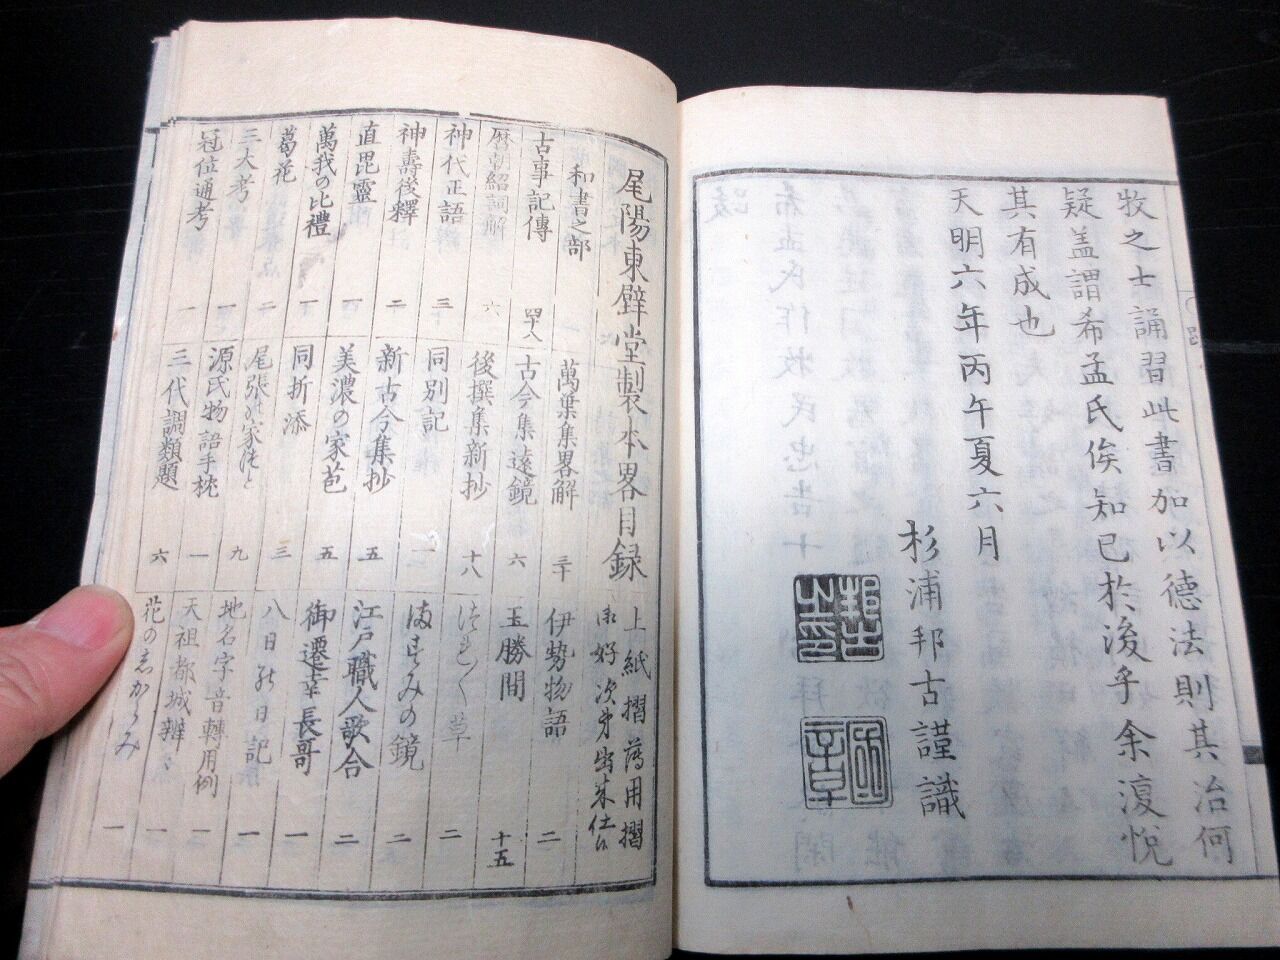 牧之士誦習此書加以德法則其治何
疑盖謂希孟氏俟知已於後乎余復悅
其有成也
天明六年丙午夏六月
杉浦邦古謹識
邦古之印
尾陽東壁堂製本畧目録
上紙摺薄用摺
御好次第出来仕候
和書之部
古事記傳 四十八
暦朝紹詞解 六
神代正語 三
神壽後釋 二
直毘靈 一
萬我の比禮 一
葛花 二
三大考 一
冠位通考 一
萬葉集畧解 三十
古今集遠鏡 六
後撰集新抄 十八
同別記 一
新古今集抄 五
美濃の家苞 五
同折添 三
尾張の家つと 九
源氏物語手枕 一
三代調類題 六
伊勢物語 二
玉勝間 十五
つれ〱草 二
ますみの鏡 二
江戸職人歌合 二
御遷幸長哥 一
八日の日記 一
地名字音轉用例 一
天祖都城辨々 一
花のしがらみ 一